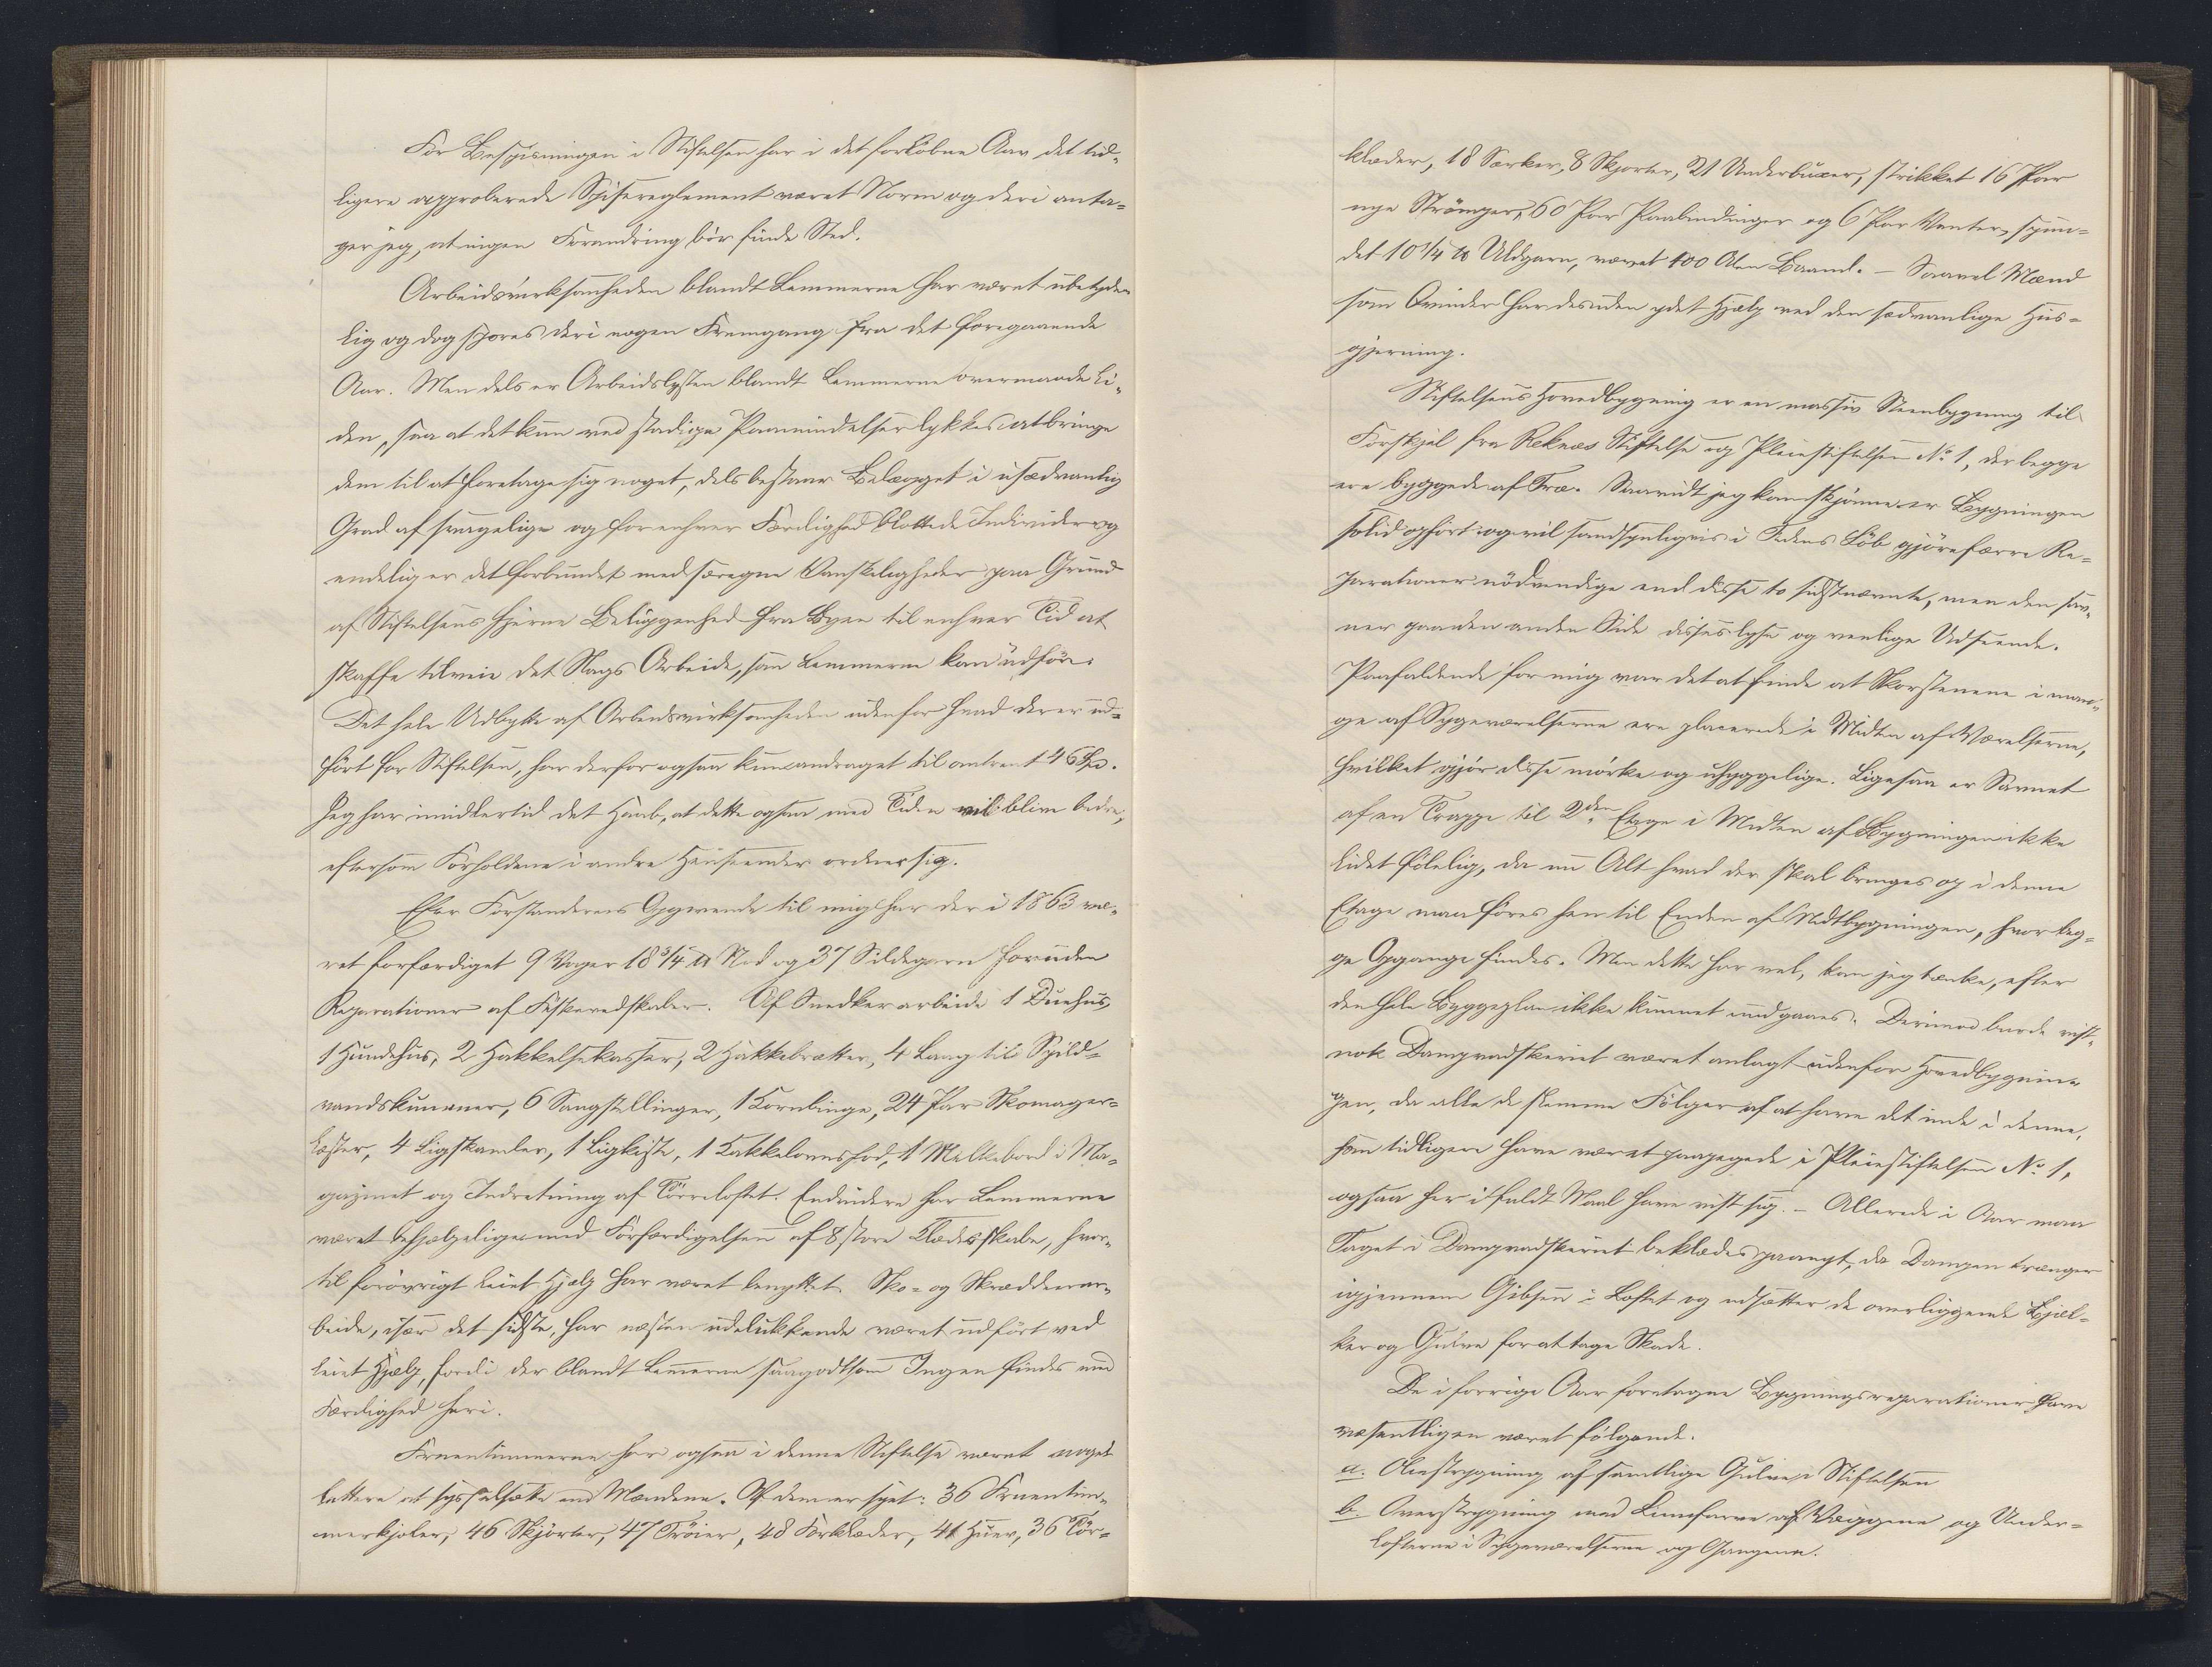 For Bespisningen i Stiftelsen har i det forløbne Aar det tid-
ligere approberede Spisereglement været Norm og deri anta-
ger jeg, at ingen Forandring bör finde Sted.
Arbeidsvirksomheden blandt Lemmerne har været ubetyde-
lig og dog spores deri nogen Fremgang fra det foregaaende
Aar. Men dels er Arbeidslysten blandt Lemmerne overmaade li-
den, saa at det kun ved stadige Paamindelser lykkes at bringe
dem til at foretage sig noget, dels bestaar Belægget i usædvanlig
Grad af svagelige og for enhver Færdighed blottede Individer og
endelig er det forbundet med særegne Vanskeligheder paa Grund
af Stiftelsens fjerne Beliggenhed fra Byen til enhver Tid at
skaffe tilveie det Slags Arbeide, som Lemmerne kan udföre.
Det hele Udbytte af Arbeidsvirksomheden udenfor hvad der er ud-
fört for Stiftelsen, har derfor ogsaa kun andraget til omtrent 46 Spd.
Jeg har imidlertid det Haab, at dette ogsaa med Tiden vil blive bedre,
eftersom Forholdene i andre Henseender ordner sig.
Efter Forstanderens Opgivende til mig har der i 1863 væ-
ret forfærdiget 9 Voger 18 3/4 ℔ Not og 37 Sildegarn foruden
Reparationer af Fiskeredskaber. Af Snedkerarbeide 1 Duehus,
1 Hundehus, 2 Hakkelsekasser, 2 Hakkebrætter, 4 Laag til Spild-
vandskummer, 6 Sengstellinger, 1 Kornbinge, 24 Par Skomager-
læster, 4 Ligskamler, 1 Ligkiste, 1 Kakkelovnsfod, 1 Melkebord i Ma-
gazinet og Indretning af Törreloftet. Endvidere har Lemmerne
været behjælpelige med Forfærdigelsen af 8 store Klædesskabe, hvor-
til forövrigt leiet Hjælp har været benyttet. Sko- og Skrædderar-
beide, især det sidste, har næsten udelukkende været udfört ved
leiet Hjælp, fordi der blandt Lemmerne saagodtsom Ingen findes med
Færdighed heri.
Fruentimmerne har ogsaa i denne Stiftelse været noget
lettere at sysselsætte end Mændene. Af dem er syet: 36 Fruentim-
merkjoler, 46 Skjorter, 47 Tröier, 48 Forklæder, 41 Huer, 36 Tör-
klæder, 18 Særker, 8 Skjorter, 21 Underbuxer, strikket 16 Par
nye Strömper, 60 Par Paabindinger og 6 Par Vanter, spun-
det 10 1/4 ℔ Uldgarn, vævet 100 Alen Baand. - Saavel Mænd
som Qvinder har desuden ydet Hjælp ved den sædvanlige Hus-
gjerning.
Stiftelsens Hovedbygning er en massiv Steenbygning til
Forskjel fra Reknæs Stiftelse og Pleiestiftelsen No 1, der begge
ere byggede af Træ. Saavidt jeg kan skjönne er Bygningen
solid opfört og vil sandsynligvis i Tidens Löb gjöre færre Re-
parationer nödvendige end disse to sidstnævnte, men den sav-
ner paa den anden Side disses lyse og venlige Udseende.
Paafaldende for mig var det at finde at Skorstenene i man-
ge af Sygeværelserne ere placerede i Midten af Værelserne,
hvilket gjör disse mörke og uhyggelige. Ligesaa er Savnet
af en Trappe til 2den Etage i Midten af Bygningen ikke
lidet fölelig, da nu Alt hvad der skal bringes op i denne
Etage maa föres hen til Enden af Midtbygningen, hvor beg-
ge Opgange findes. Men dette har vel, kan jeg tænke, efter
den hele Byggeplan ikke kunnet undgaaes. Derimod burde vist-
nok Dampvadskeriet været anlagt udenfor Hovedbygnin-
gen, da alle de slemme Fölger af at have det inde i denne,
som tidligere have været paapegede i Pleiestiftelsen No 1,
ogsaa her i fuldt Maal have vist sig. - Allerede i Aar maa
Taget i Dampvadskeriet beklædes paanyt, da Dampen trænger
igjennem Gibsen i Loftet og udsætter de overliggende Bjæl-
ker og Gulve for at tage Skade.
De i forrige Aar foretagne Bygningsreparationer have
væsentligen været fölgende.
a. Oliestrygning af samtlige Gulve i Stiftelsen
b. Overstrygning med Limfarve af Væggene og Under-
lofterne i Sygeværelserne og Gangene.